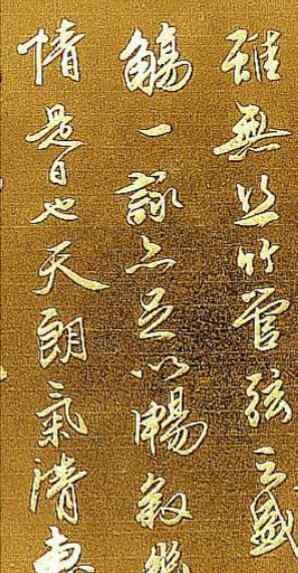 雖無丝竹管弦之盛
觴一詠亦足以暢敘幽
情是日也天朗氣清惠